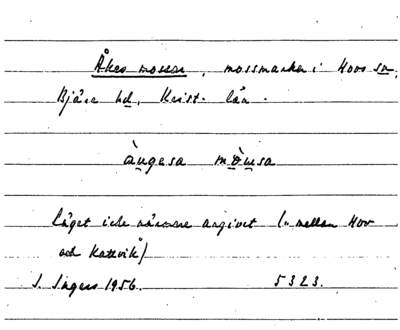 Åkes mosse, mossmarker i Hovs sn,
Bjäre hd, Krist. län.
àugesa mòusa
Läget icke närmare angivet (" mellan Hov
och Kattvik")
I. Ingers 1956. 5323.